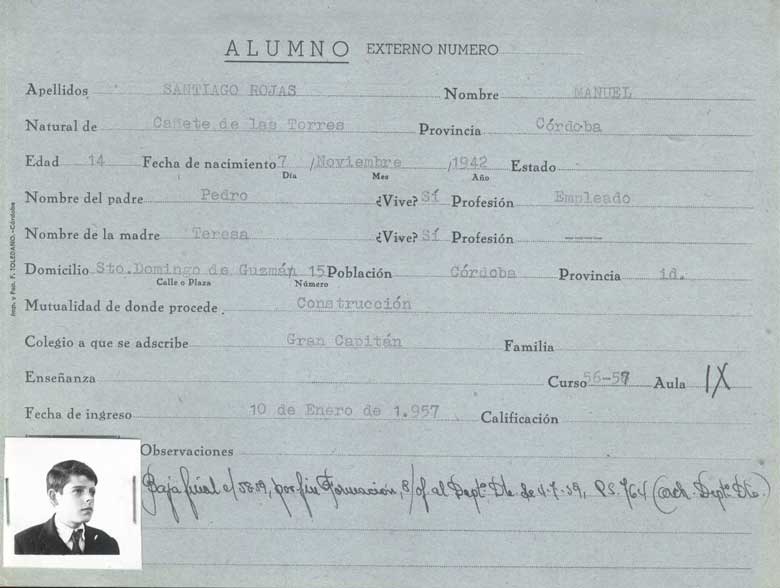 ALUMNO EXTERNO NUMERO
Apellidos SANTIAGO ROJAS Nombre MANUEL
Natural de Cañete de las Torres Provincia Córdoba
Edad 14 Fecha de nacimiento 7 / Noviembre / 1942 Estado
Día Mes Año
Nombre del padre Pedro ¿Vive? Sí Profesión Empleado
Nombre de la madre Teresa ¿Vive? Sí Profesión ----
Domicilio Sto. Domingo de Guzmán 15 Población Córdoba Provincia id.
Calle o Plaza Número
Mutualidad de donde procede Construcción
Colegio a que se adscribe Gran Capitán Familia
Enseñanza Curso 56-57 Aula IX
Fecha de ingreso 10 de Enero de 1.957 Calificación
Observaciones
Baja final c/58.59, por fin Formación, s/of. al Deptº. Dte. de 4-7-59, P.S. 764 (arch. Deptº. Dte.)
Imp. y Pap. F. TOLEDANO.-Córdoba